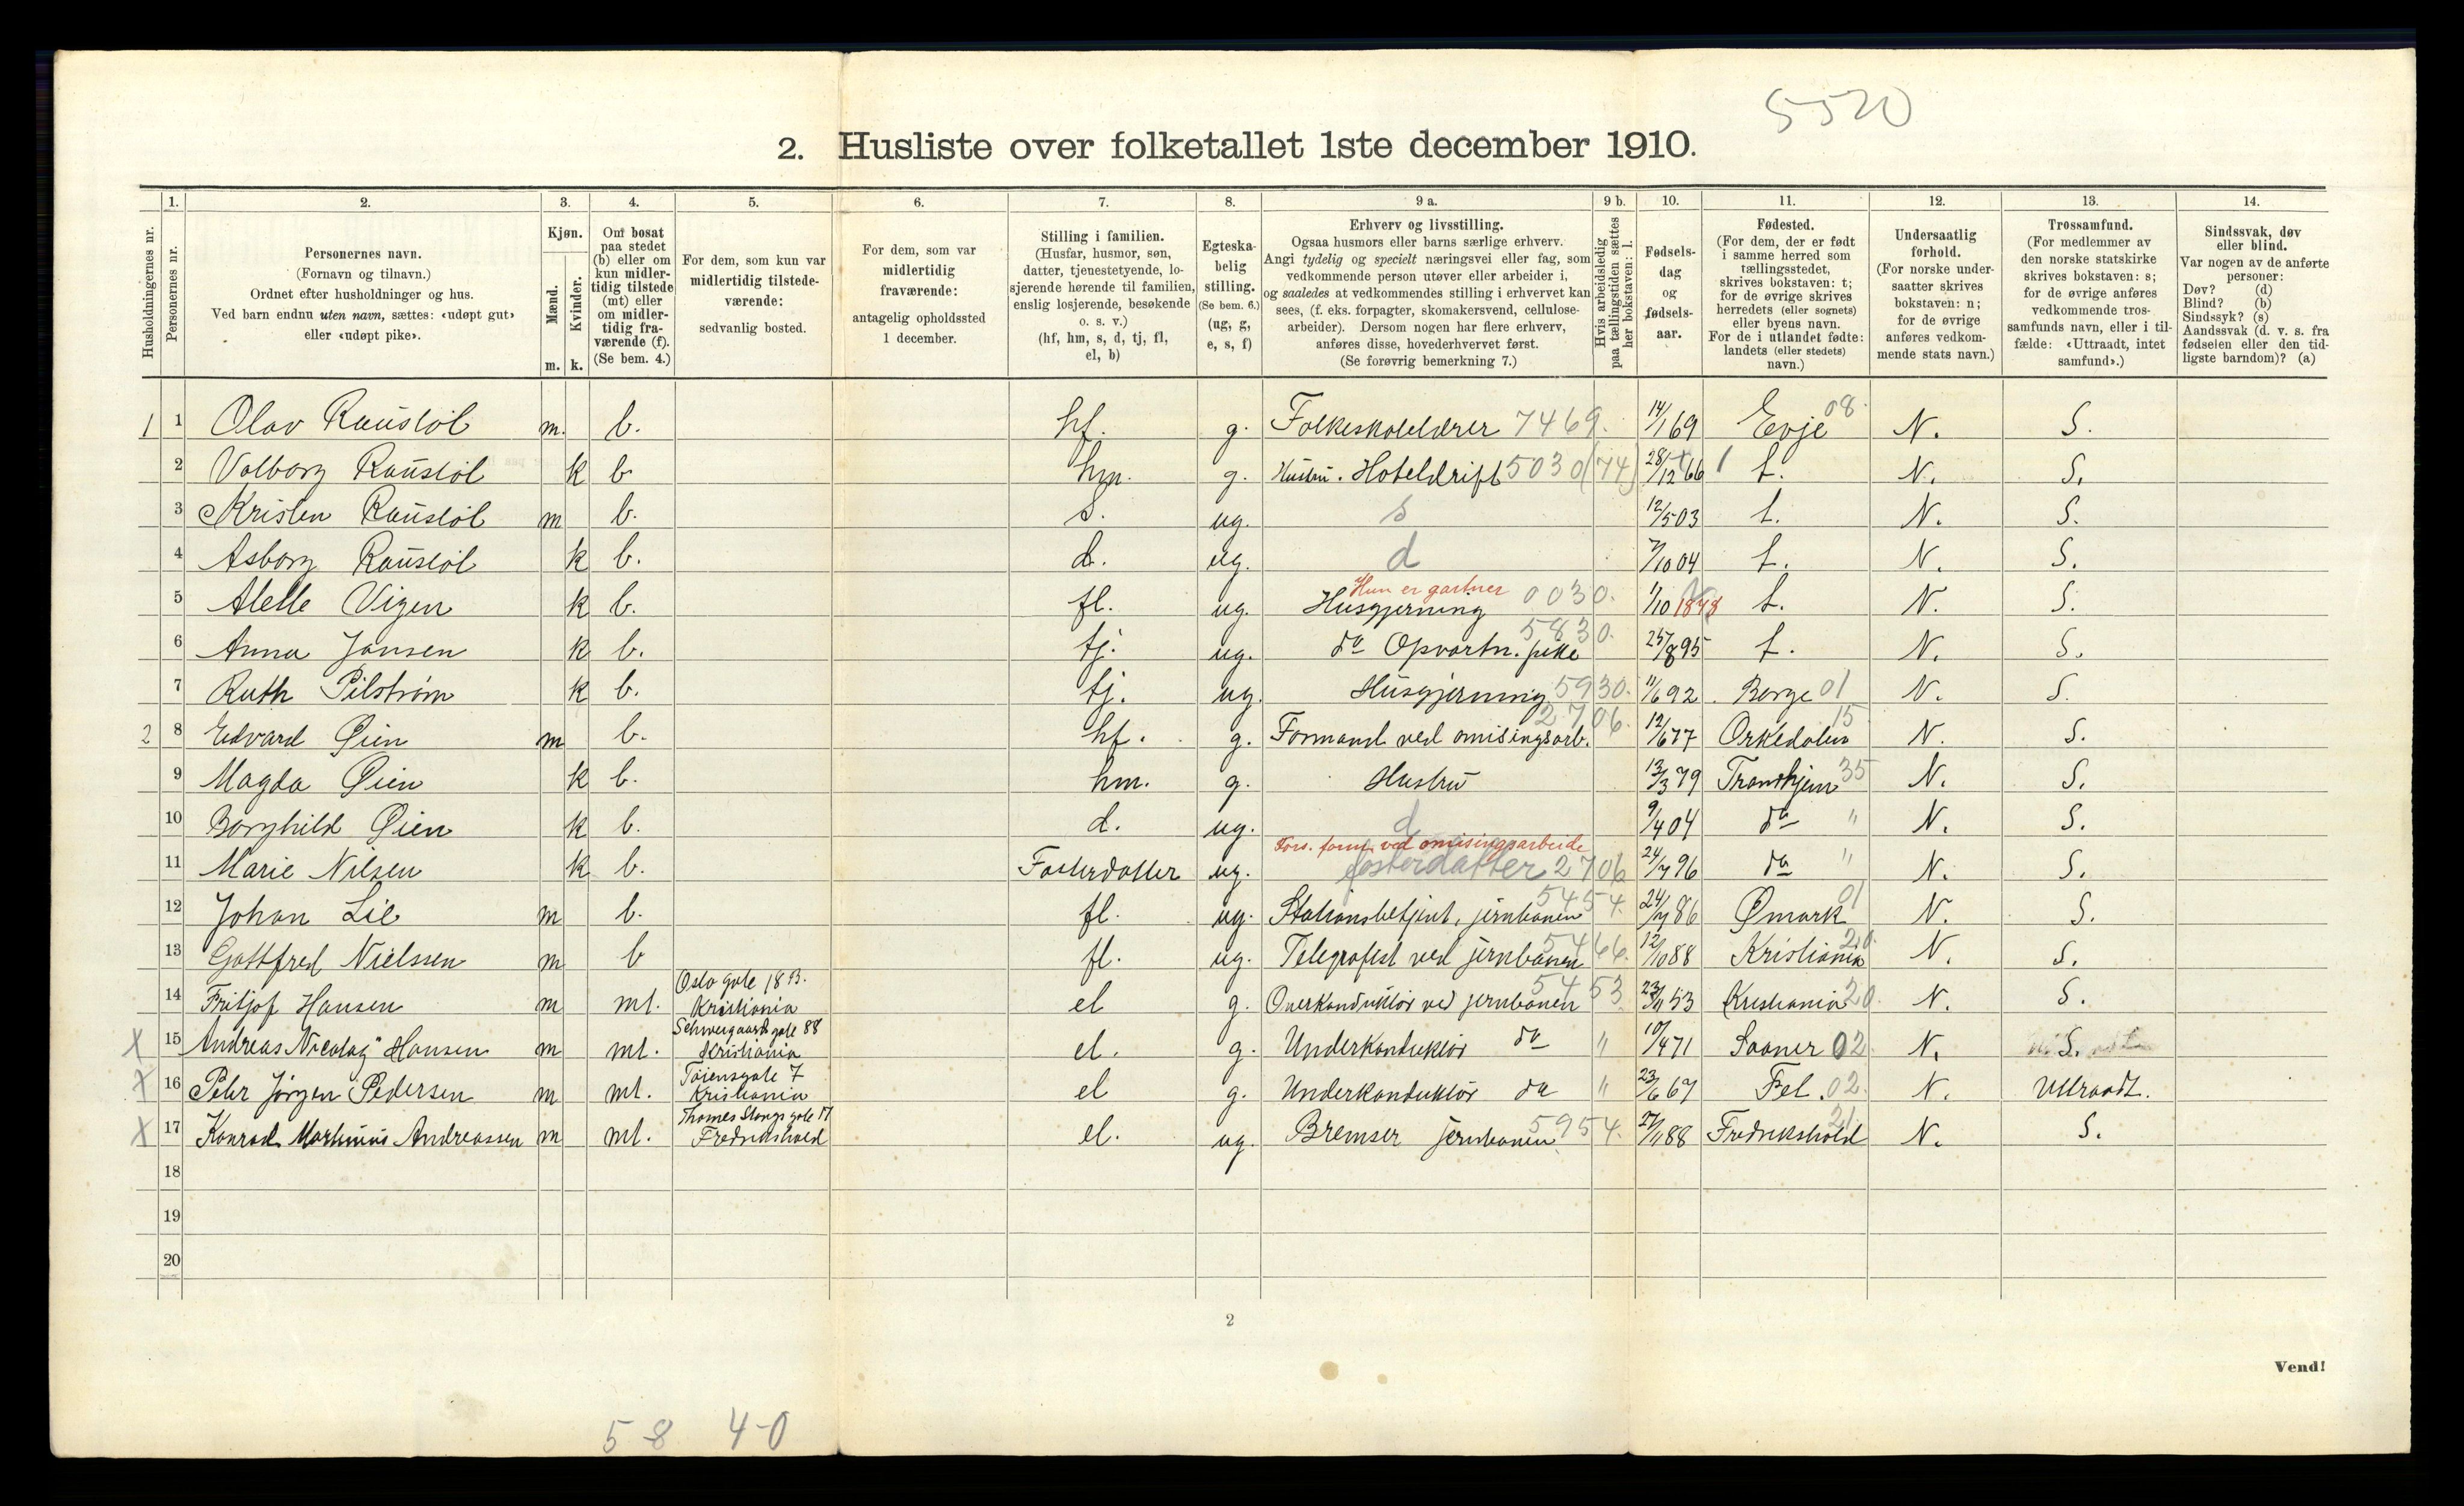 5520
2. Husliste over folketallet 1ste december 1910.
1. 2. 3. 4. 5. 6. 7. 8. 9 a. 9 b. 10. 11. 12. 13. 14.
Husholdningernes nr.
Personernes nr.
Personernes navn.
(Fornavn og tilnavn.)
Ordnet efter husholdninger og hus.
Ved barn endnu uten navn, sættes: «udøpt gut»
eller «udøpt pike».
Kjøn.
Mænd.
Kvinder.
m. k.
Om bosat
paa stedet
(b) eller om
kun midler-
tidig tilstede
(mt) eller
om midler-
tidig fra-
værende (f).
(Se bem. 4.)
For dem, som kun var
midlertidig tilstede-
værende:
sedvanlig bosted.
For dem, som var
midlertidig
fraværende:
antagelig opholdssted
1 december.
Stilling i familien.
(Husfar, husmor, søn,
datter, tjenestetyende, lo-
sjerende hørende til familien,
enslig losjerende, besøkende
o. s. v.)
(hf, hm, s, d, tj, fl,
el, b)
Egteska-
belig
stilling.
(Se bem. 6.)
(ug, g,
e, s, f)
Erhverv og livsstilling.
Ogsaa husmors eller barns særlige erhverv.
Angi tydelig og specielt næringsvei eller fag, som
vedkommende person utøver eller arbeider i,
og saaledes at vedkommendes stilling i erhvervet kan
sees, (f. eks. forpagter, skomakersvend, cellulose-
arbeider). Dersom nogen har flere erhverv,
anføres disse, hovederhvervet først.
(Se forøvrig bemerkning 7.)
Hvis arbeidsledig
paa tællingstiden sættes
her bokstaven: l.
Fødsels-
dag
og
fødsels-
aar.
Fødested.
(For dem, der er født
i samme herred som
tællingsstedet,
skrives bokstaven: t;
for de øvrige skrives
herredets (eller sognets)
eller byens navn.
For de i utlandet fødte:
landets (eller stedets)
navn.)
Undersaatlig
forhold.
(For norske under-
saatter skrives
bokstaven: n;
for de øvrige
anføres vedkom-
mende stats navn.)
Trossamfund.
(For medlemmer av
den norske statskirke
skrives bokstaven: s;
for de øvrige anføres
vedkommende tros-
samfunds navn, eller i til-
fælde: «Uttraadt, intet
samfund».)
Sindssvak, døv
eller blind.
Var nogen av de anførte
personer:
Døv? (d)
Blind? (b)
Sindssyk? (s)
Aandssvak (d. v. s. fra
fødselen eller den tid-
ligste barndom)? (a)
1 1 Olav Rausløl m. b. hf. g. Folkeskolelærer 7469. 14/1 69 Evje 08 N. S.
2 Valborg Rausløl k b hm. g. Hustru. Hoteldrift 5030 (74) 28/12 66 t. N. S.
3 Kristen Rausløl m b. s. ug. s 12/5 03 t. N. S.
4 Asborg Rausløl k b. d. ug. d 7/10 04 t. N. S.
Hun er gartner
5 Alelle Vigen k b. fl. ug. Husgjerning 0030. 1/10 1848 t. N. S.
6 Anna Jansen k b. tj. ug. do Opvartn. pike 5830. 25/8 95 t. N. S.
7 Ruth Pilstrøm k b. tj. ug. Husgjerning 5930. 11/6 92 Borge 01 N. S.
2 8 Edvard Øien m b. hf. g. Formand ved omisingsarb. 2706. 12/6 77 Orkedalen 15 N. S.
9 Magda Øien k b. hm. g. Hustru 13/3 79 Trondhjem 35 N. S.
10 Borghild Øien k b. d. ug. d 9/4 04 do " N. S.
Fors. form. ved omisingsarbeide
11 Marie Nilsen k b. Fosterdatter ug. fosterdatter 2706 24/7 96 do " N. S.
12 Johan Lie m b. fl. ug. Stationsbetjent, jernbanen 5454. 24/7 86 Ømark 01 N. S.
13 Gottfred Nielssen m b fl. ug. Telegrafist ved jernbanen 5466. 12/10 88 Kristiania 20. N. S.
Oslo gate 18 B.
14 Fritjof Hansen m mt. Kristiania el g. Overkonduktør ved jernbanen 5453 23/11 53 Kristiania 20. N. S.
Schweigaards gate 88
X 15 Andreas Nicolay Hansen m mt. Kristiania el. g. Underkonduktør do " 10/4 71 Saaner 02 N. S.
Tøiensgate 7
X 16 Peter Jørgen Pedersen m mt. Kristiania el g. Underkonduktør do " 23/6 67 Fet. 02. N. Uttraadt.
Thomes Stangs gate 17
X 17 Konrad Martinius Andreassen m mt. Fredrikshald el. ug. Bremser jernbanen 5954. 27/11 88 Fredrikshald 21 N. S.
18
19
20
2
Vend!
58 40